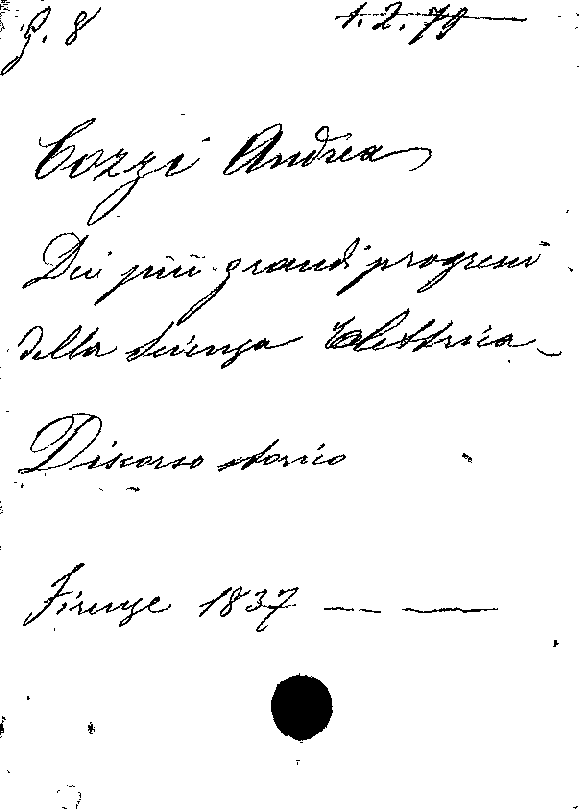 G. 8 1.2.79
Cozzi Andrea
Dei più grandi progressi
della scienza Elettrica
Discorso storico
Firenze 1837